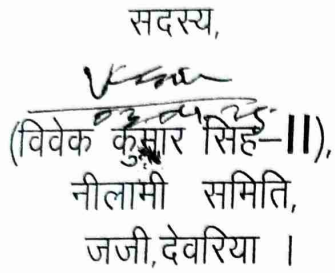 सदस्य,
03.04.25
(विवेक कुमार सिंह-II),
नीलामी समिति,
जजी,देवरिया ।